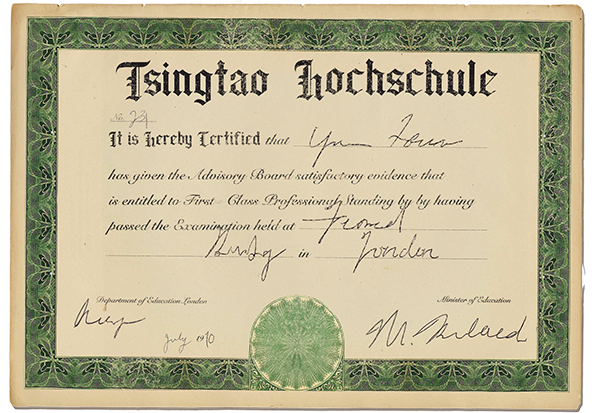 Tsingtao Hochschule
No. 29
It is Hereby Certified that
has given the Advisory Board satisfactory evidence that
is entitled to First - Class Professional Standing by by having
passed the Examination held at
in London
Department of Education London
Minister of Education
July
M.